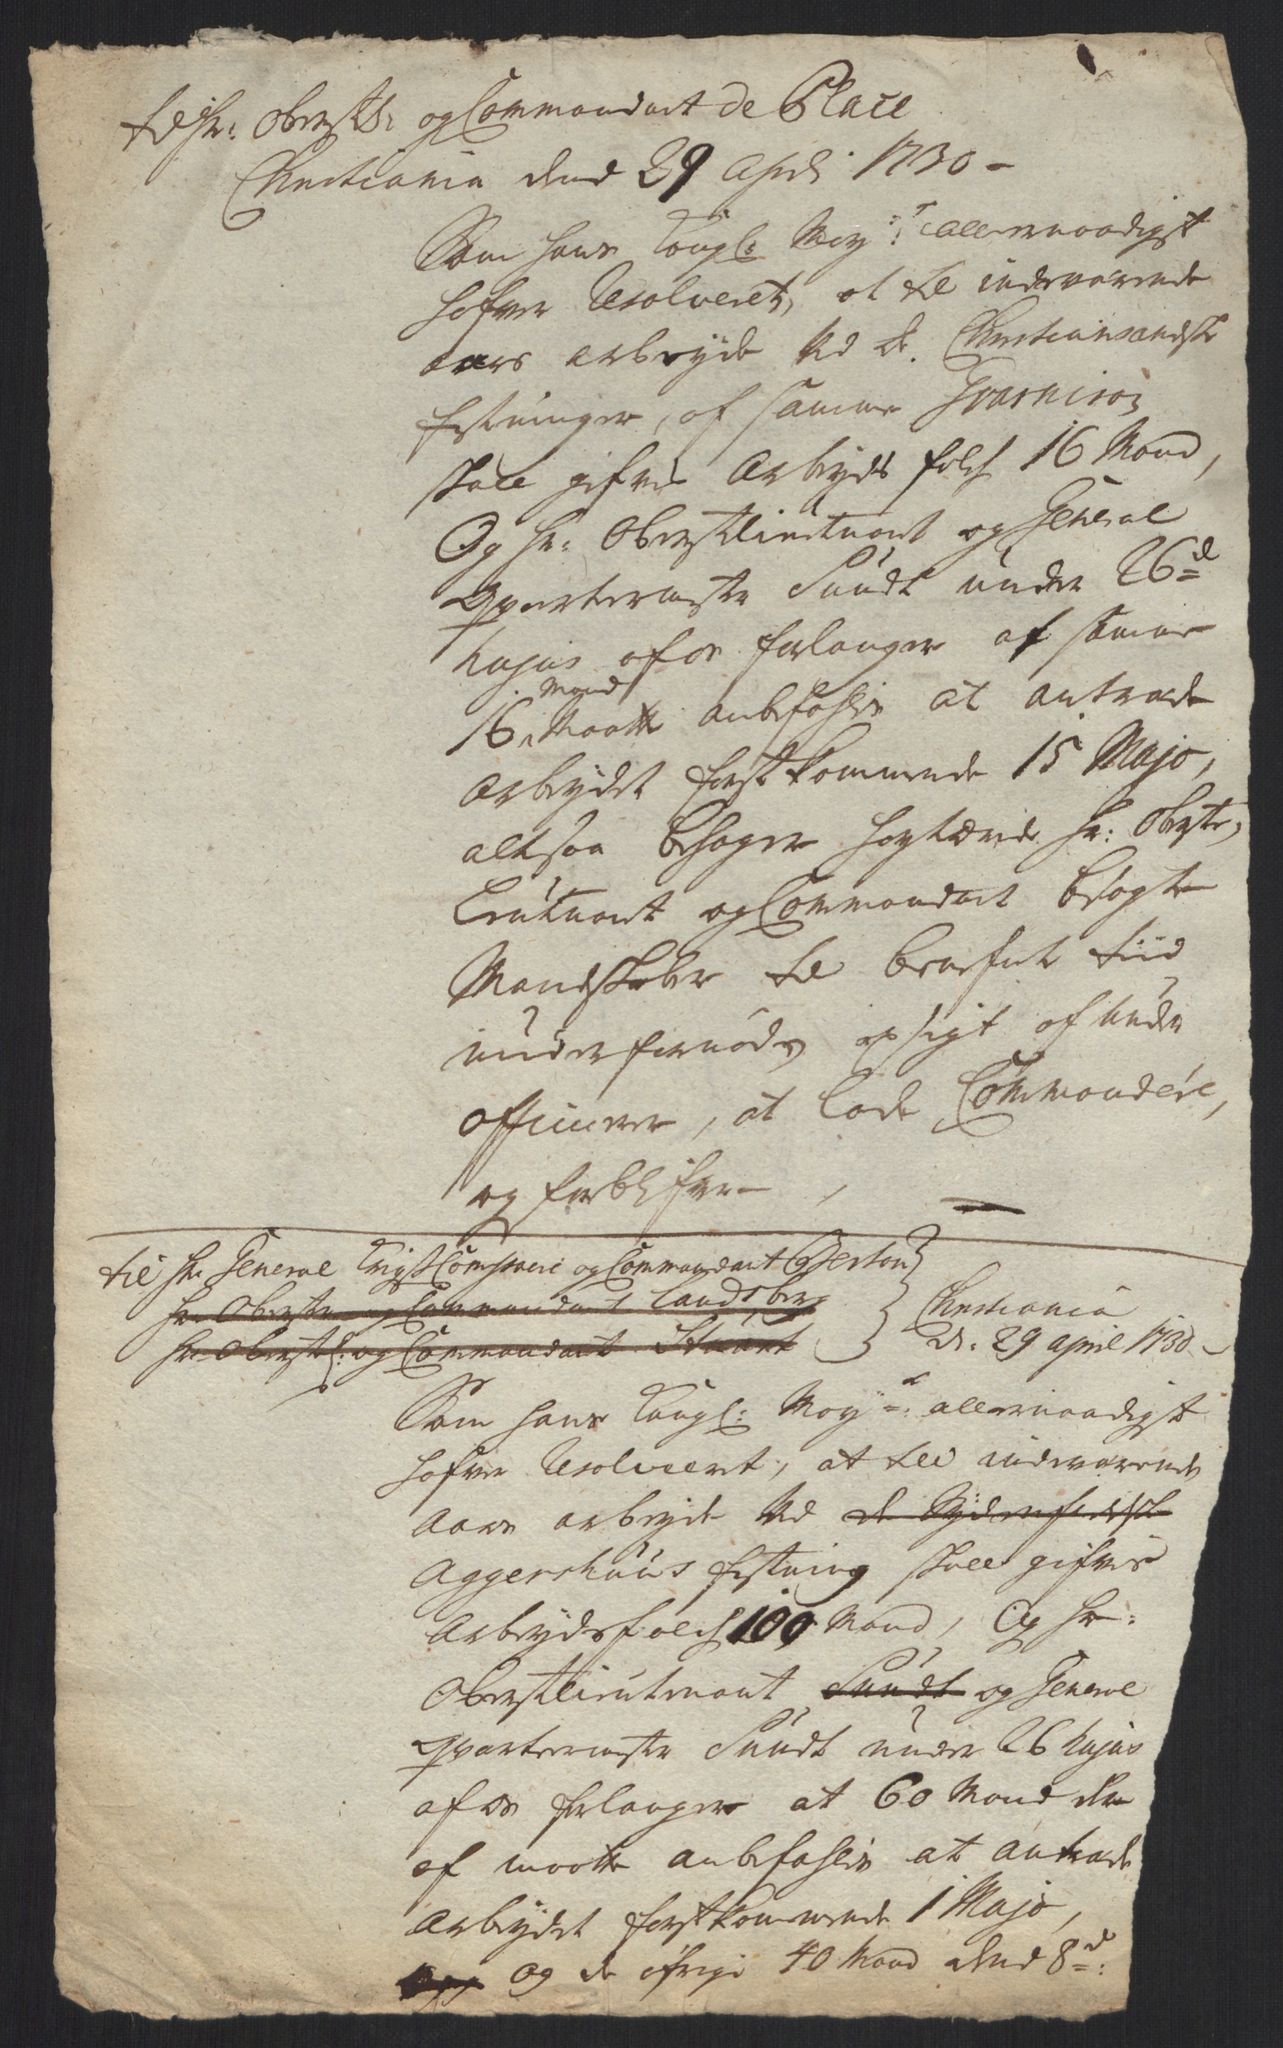 til Hr: Oberstl: og Commendant de Place
Christiania dend 29 April 1730 –
Som Hans Kongl: May:t allernaadigst
hafver Resolveret, at til indeværende
aars arbeyde ved de Christiansandske
festninger, af samme Guarnison
skall gifves Arbeyds folch 16 Mand,
Og Hr: Oberstlieutnant og General
Qvarteermester Sundt under 26d
hujus af os forlanger at samme
16 Mand Maatte anbefahles at antræde
Arbeydet førstkommende 15 Majo,
altsaa behager høytærede Hr: Obrste
Lieutnant og Commandant besagte
Mandskaber til bemelte tiid
under fornøden opsigt af under
officerer, at lade Commandere,
og forblifver
til Hr General Krigs Commissaire og Commandant Gherton
Hr Oberste og Commandant Landsberg
Hr Oberstl: og Commandant Stuart
Christiania
d. 29 april 1730 –
Som Hans Kongl: May:t allernaadigst
hafver Resolveret, at till indeværende
Aars arbeyde ved de Syndenfieldske
Aggershuus festning skall gifves
Arbeydsfolch 100 Mand, Og Hr:
Oberstlieutenant Sundt og General
qvarteermester Sundt under 26 hujus
af os forlanger at 60 Mand der
af maatte anbefahles at antræde
Arbeydet førstkommende 1 Majo,
og de øfrige 40 Mand dend 8d: